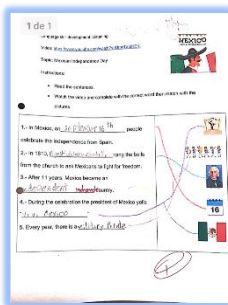 1 de 1
MEXICO
Topic: Mexican Independence Day
Instructions:
Read the sentences.
Watch the video and complete with the correct word then match with the
pictures.
1.- In Mexico, on september 16 th people
celebrate the independence from Spain.
2.- In 1810, rang the bells
from the church to ask Mexicans to fight for freedom.
3.- After 11 years, Mexico became an
independent country.
4.- During the celebration the president of Mexico yells
Viva Mexico
5. Every year, there is a military Parade
16